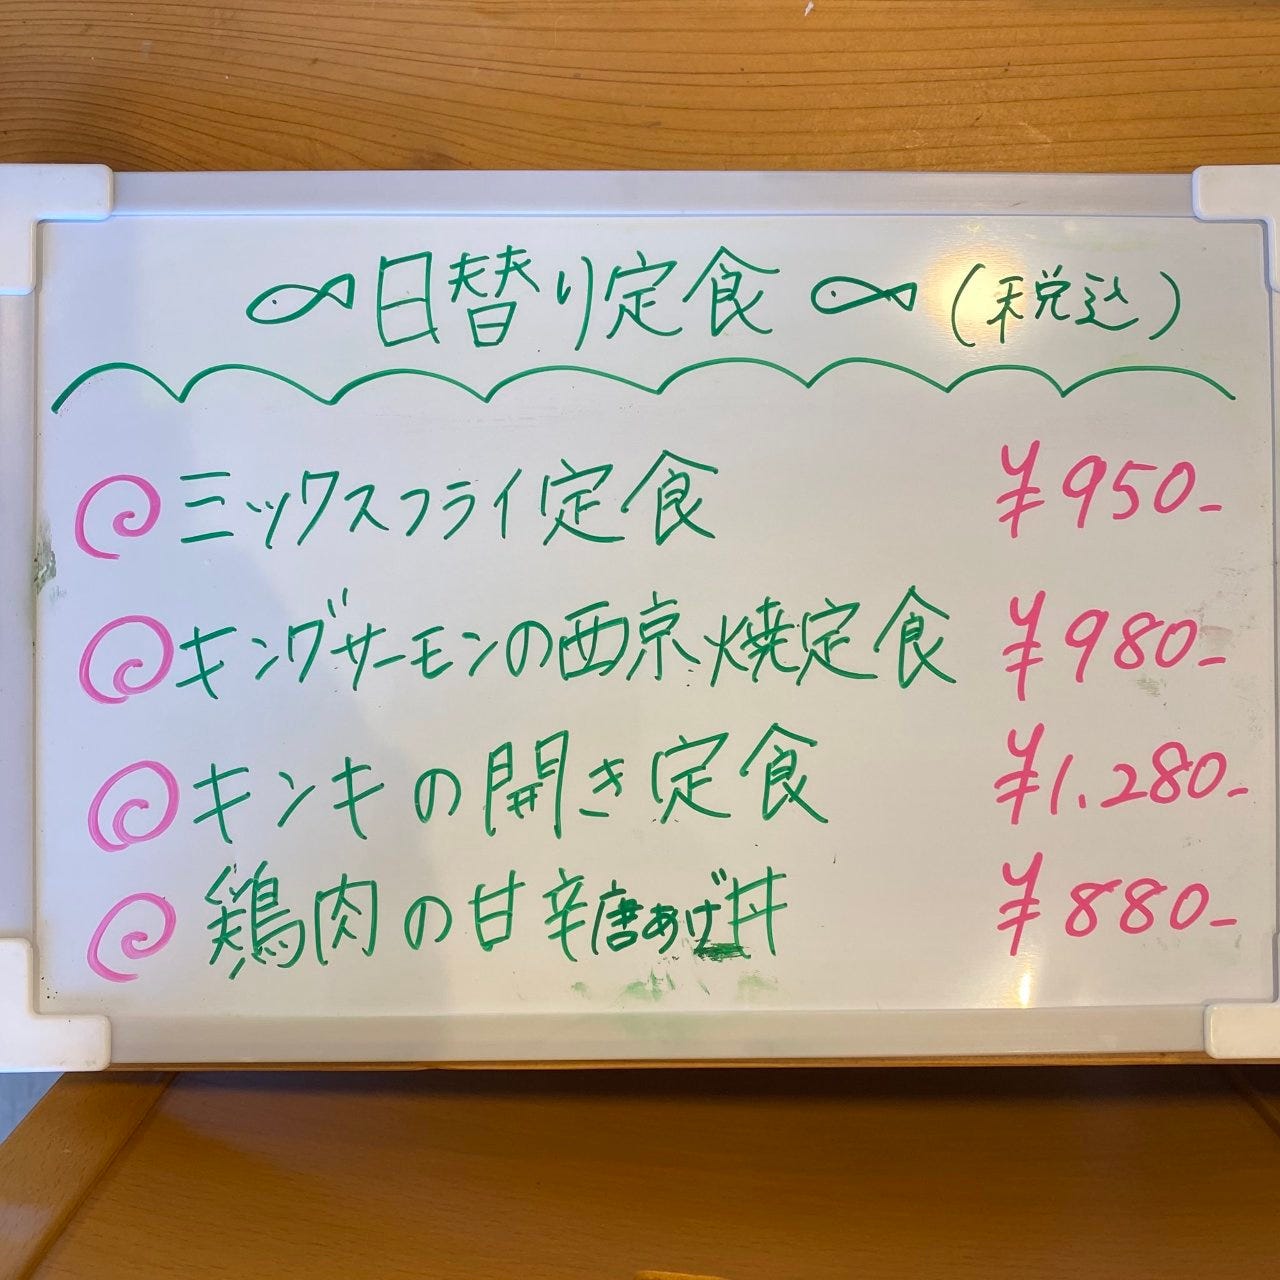 日替り定食 (税込)
ミックスフライ定食 ¥950-
キングサーモンの西京焼定食 ¥980-
キンキの開き定食 ¥1.280-
鶏肉の甘辛唐あげ丼 ¥880-